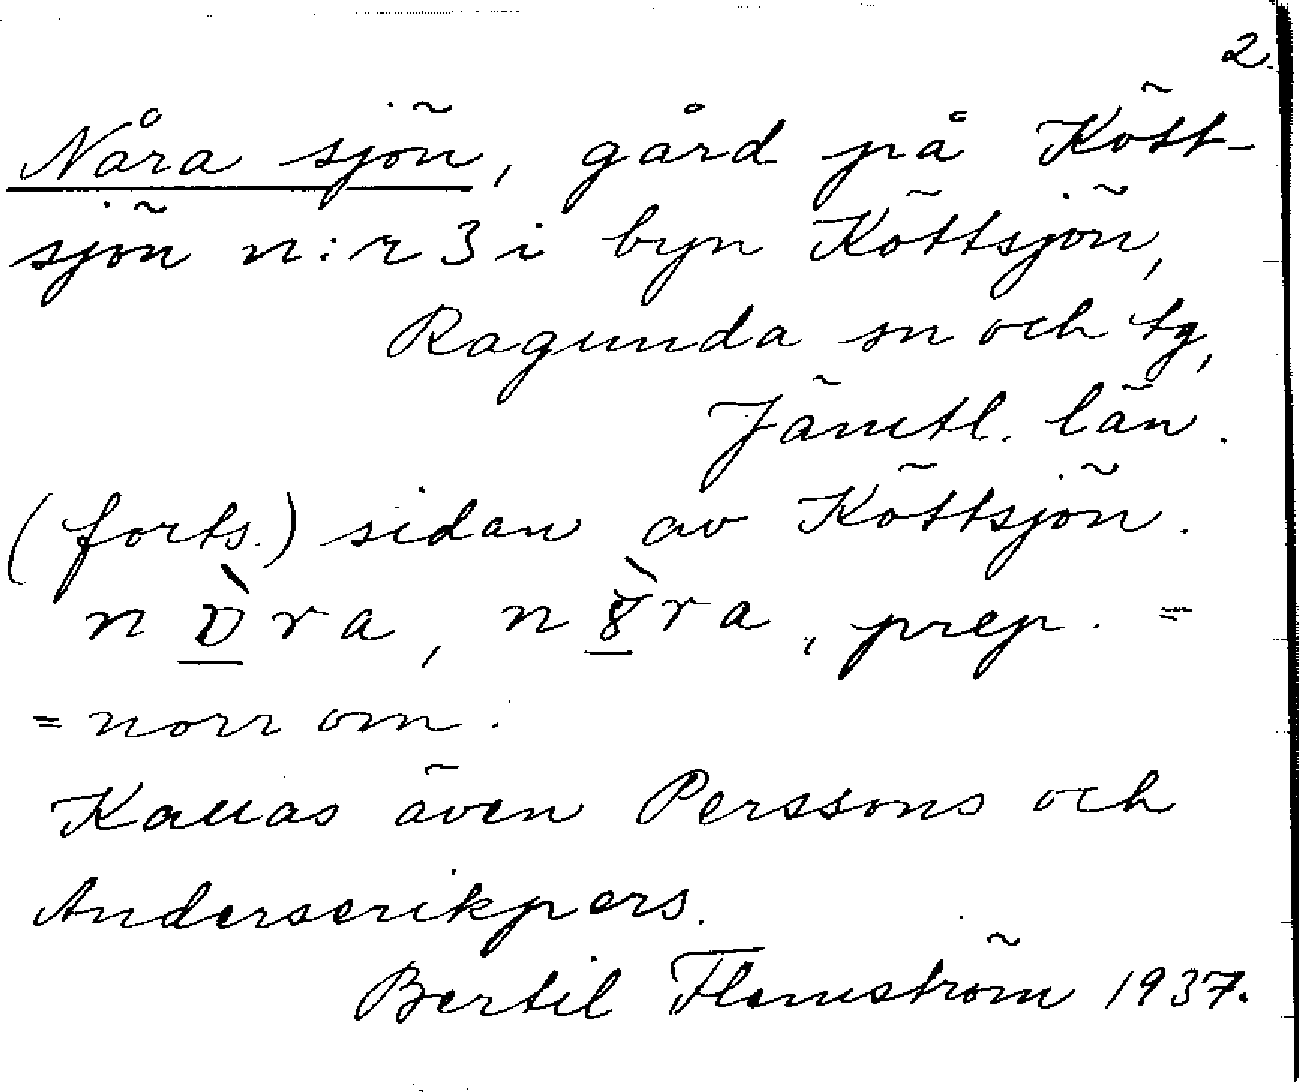 2.
Nåra sjön, gård på Kött-
sjön n:r 3 i byn Köttsjön,
Ragunda sn och tg,
Jämtl. län.
(forts.) sidan av Köttsjön.
ra, prep. =
= norr om.
Kallas även Perssons och
Anderserikpers.
Bertil Flemström 1937.